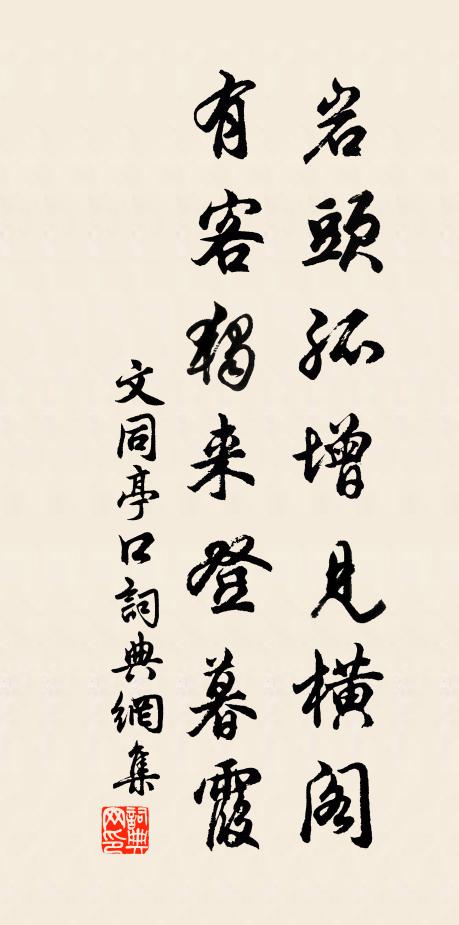 岩頭孤增見橫閣
有客獨来登暮霞
文同亭口詞典網集
詞典
网印